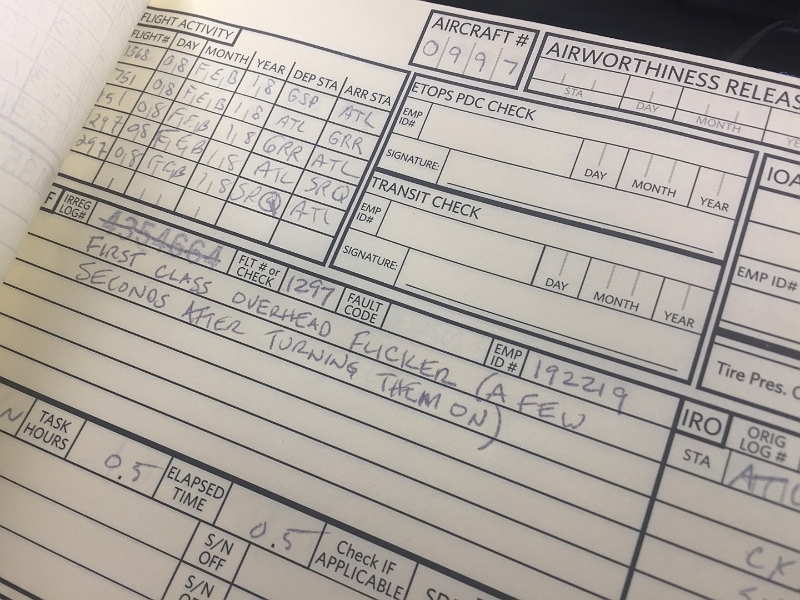 FLIGHT ACTIVITY
FLIGHT# DAY MONTH YEAR DEP STA ARR STA
1568 08 FEB 18 GSP ATL
751 08 FEB 18 ATL GRR
151 08 FEB 18 GRR ATL
1297 08 FEB 18 ATL SRQ
1297 08 FEB 18 SRQ ATL
AIRCRAFT #
0997
AIRWORTHINESS RELEAS
STA DAY MONTH YE
ETOPS PDC CHECK
EMP ID#
SIGNATURE:
DAY MONTH YEAR
TRANSIT CHECK
EMP ID#
SIGNATURE:
DAY MONTH YEAR
IOA
EMP ID#
Tire Pres. C
F IRREG LOG# 4354664 FLT # or CHECK 1297 FAULT CODE EMP ID# 192219
FIRST CLASS OVERHEAD FLICKER (A FEW
SECONDS AFTER TURNING THEM ON)
IRO ORIG LOG #
STA ATL
CK
N TASK HOURS 0.5 ELAPSED TIME 0.5 Check IF APPLICABLE
S/N OFF
S/N